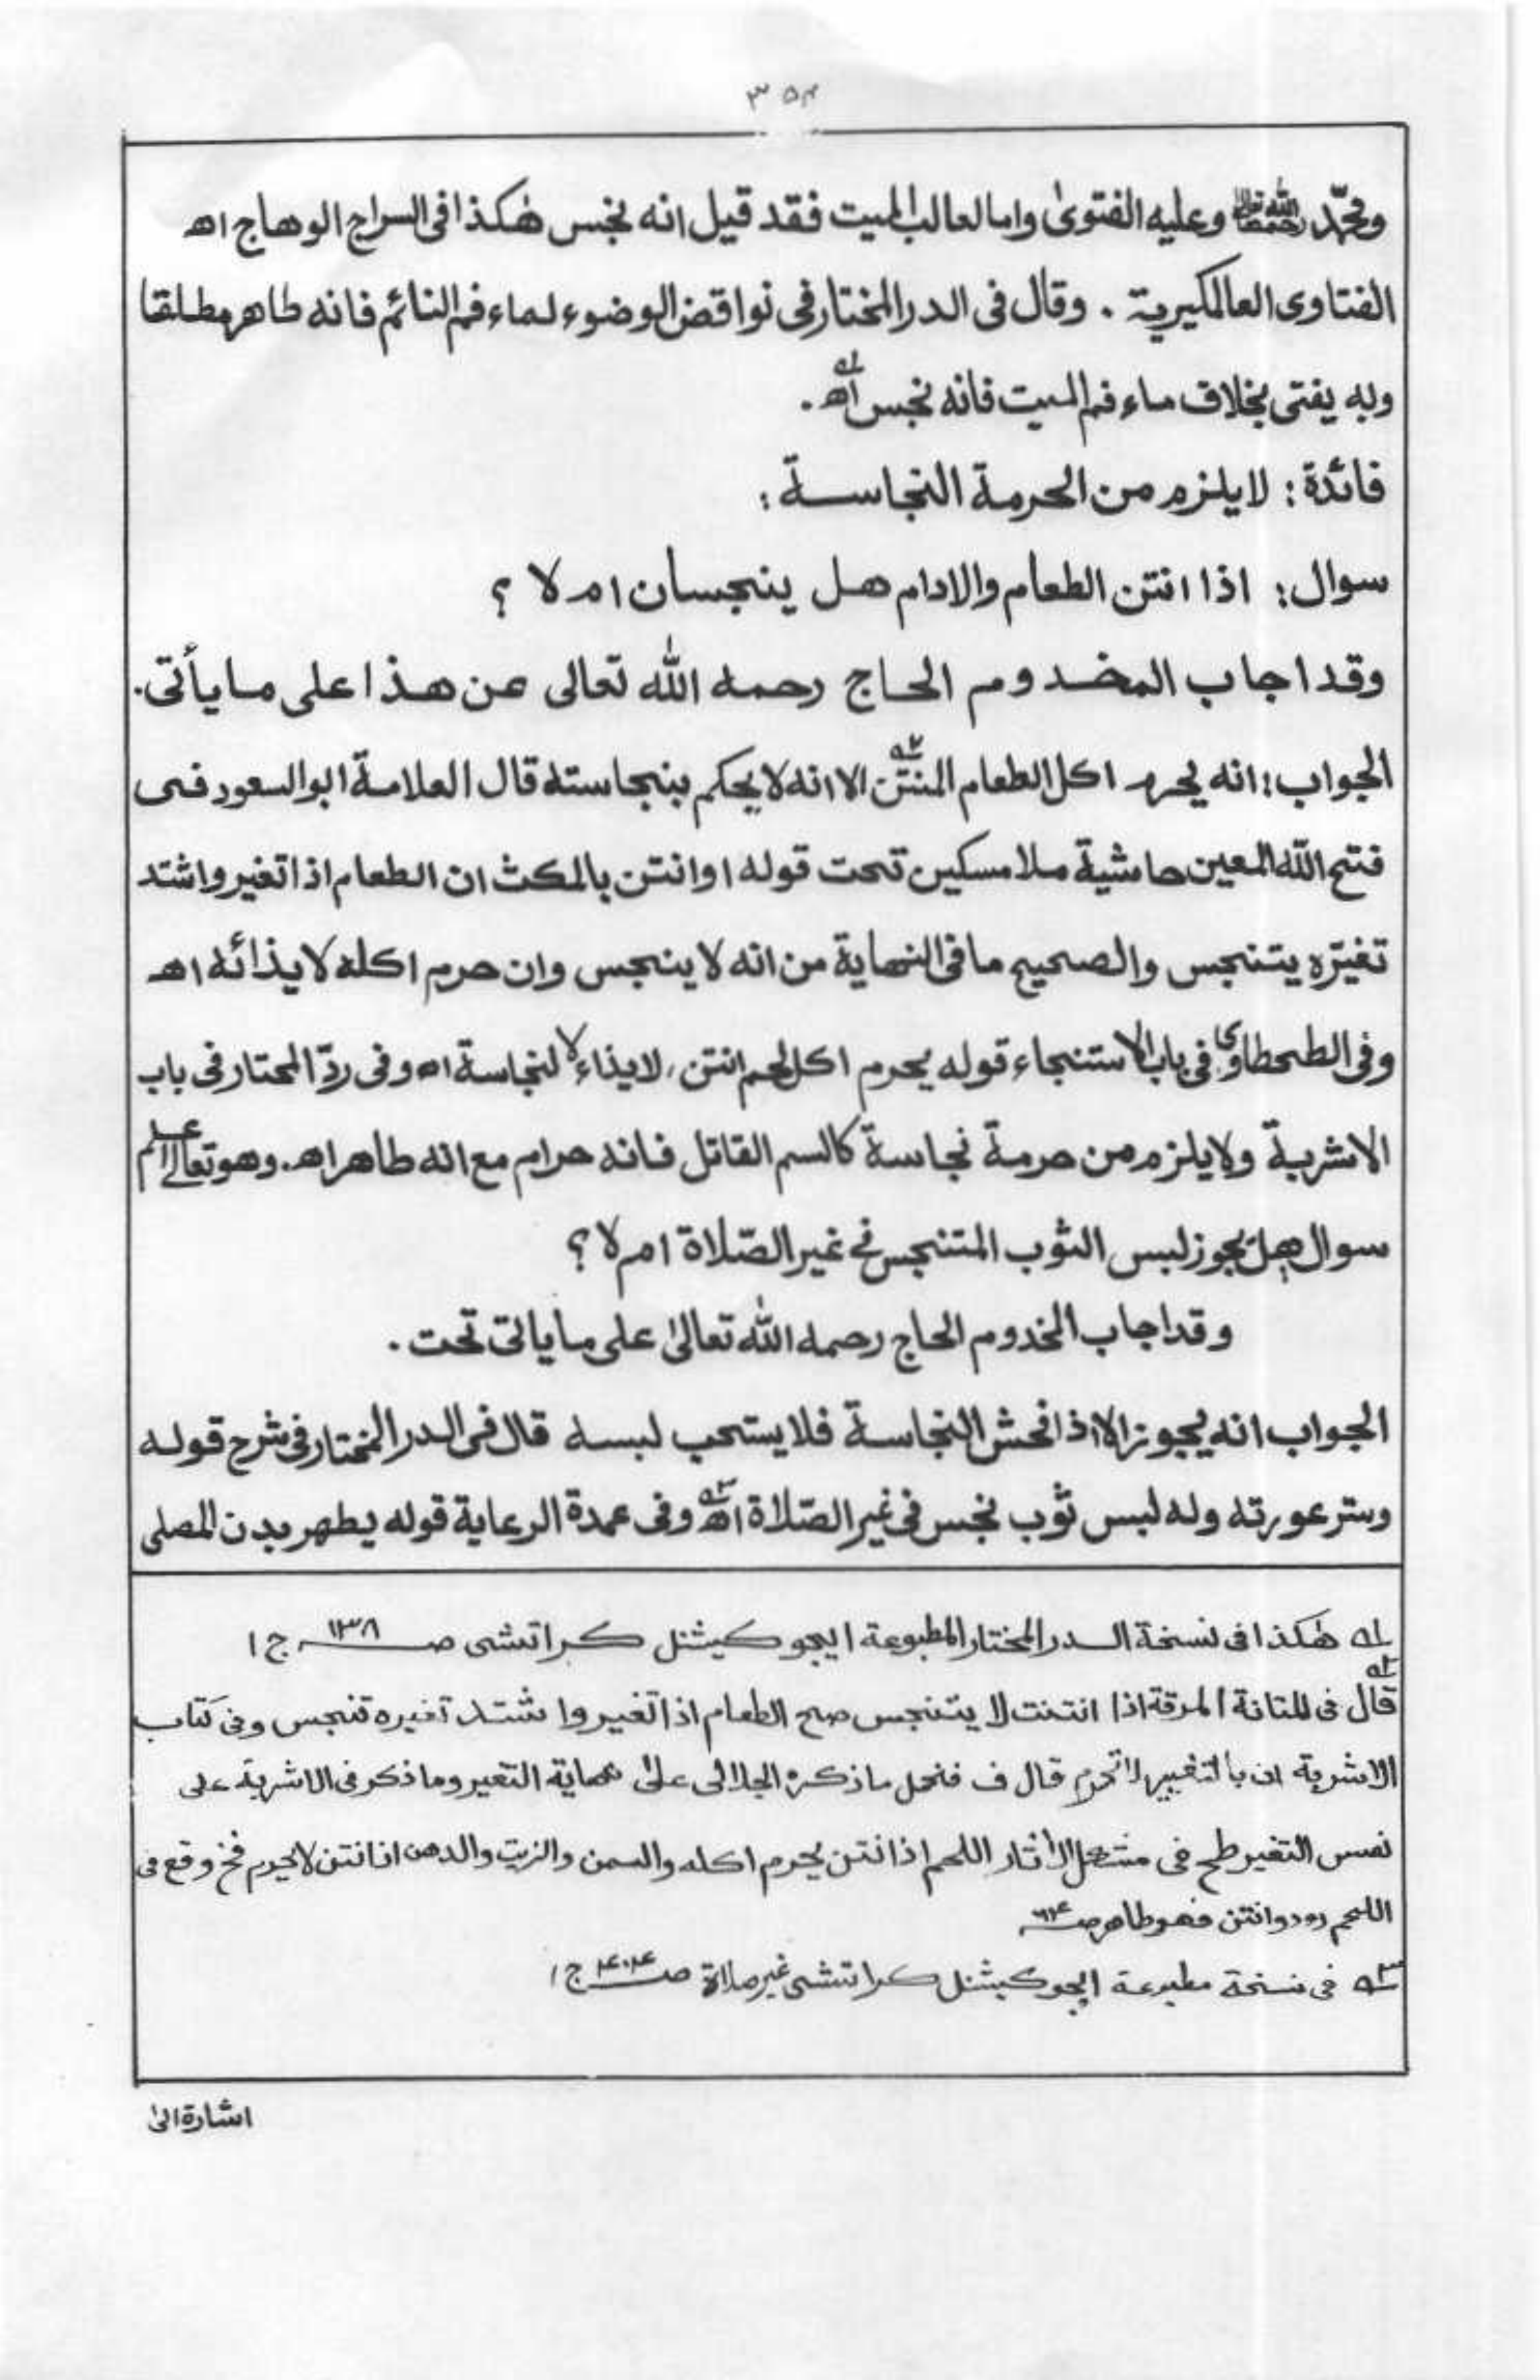 ٣٥٤
ومحمّد رحمهما الله تعالى وعليه الفتوىٰ واما لعاب الميت فقد قيل انه نجس هٰكذا فى السراج الوهاج اھ
الفتاوى العالمكيرية . وقال فى الدر المختار فى نواقض الوضوء لماء فم النائم فانه طاهر مطلقا
وبه يفتى بخلاف ماء فم الميت فانه نجس اھ ١ـه .
فائدة : لا يلزم من الحرمة النجاسة :
سوال : اذا انتن الطعام والادام هل ينجسان ام لا ؟
وقد اجاب المخدوم الحاج رحمه الله تعالى عن هذا على ما يأتى .
الجواب : انه يحرم اكل الطعام المنتن ٢ـه الا انه لا يحكم بنجاسته قال العلامة ابو السعود فى
فتح الله المعين حاشية ملا مسكين تحت قوله او انتن بالمكث ان الطعام اذا تغير واشتد
تغيّره يتنجس والصحيح ما فى النهاية من انه لا ينجس وان حرم اكله لايذائه اھ
وفى الطحطاوى فى باب الاستنجاء قوله يحرم اكل لحم انتن ، لايذاء لا لنجاسة اھ وفى ردّ المحتار فى باب
الاشربة ولا يلزم من حرمة نجاسة كالسم القاتل فانه حرام مع انه طاهر اھ . وهو تعالىٰ اعلم
سوال هل يجوز لبس الثوب المتنجس فى غير الصّلاة ام لا ؟
وقد اجاب المخدوم الحاج رحمه الله تعالىٰ على ما ياتى تحت .
الجواب انه يجوز الا اذا فحش النجاسة فلا يستحب لبسه قال فى الدر المختار فى شرح قوله
وستر عورته وله لبس ثوب نجس فى غير الصّلاة اھ ٣ـه وفى عمدة الرعاية قوله يطهر بدن المصلى
١ـه هٰكذا فى نسخة الدر المختار المطبوعة ايجوكيشنل كراتشى صـ ١٣٨ ج ١
٢ـه قال فى المتانة المرقة اذا انتنت لا يتنجس صح الطعام اذا تغير واشتد تغيره تنجس وفى كتاب
الاشربة ان بالتغيير لا تحرم قال ف فنحمل ما ذكره الجلالى علىٰ نهاية التغير وما ذكر فى الاشربة على
نفس التغير طح فى مشكل الآثار اللحم اذا نتن يحرم اكله والسمن والزيت والدهن اذا نتن لا يحرم فخ وقع فى
اللحم دود وانتن فهو طاهر صـ
٣ـه فى نسخة مطبوعة ايجوكيشنل كراتشى غير صلاة صـ ٤٠٤ ج ١
اشارة الىٰ